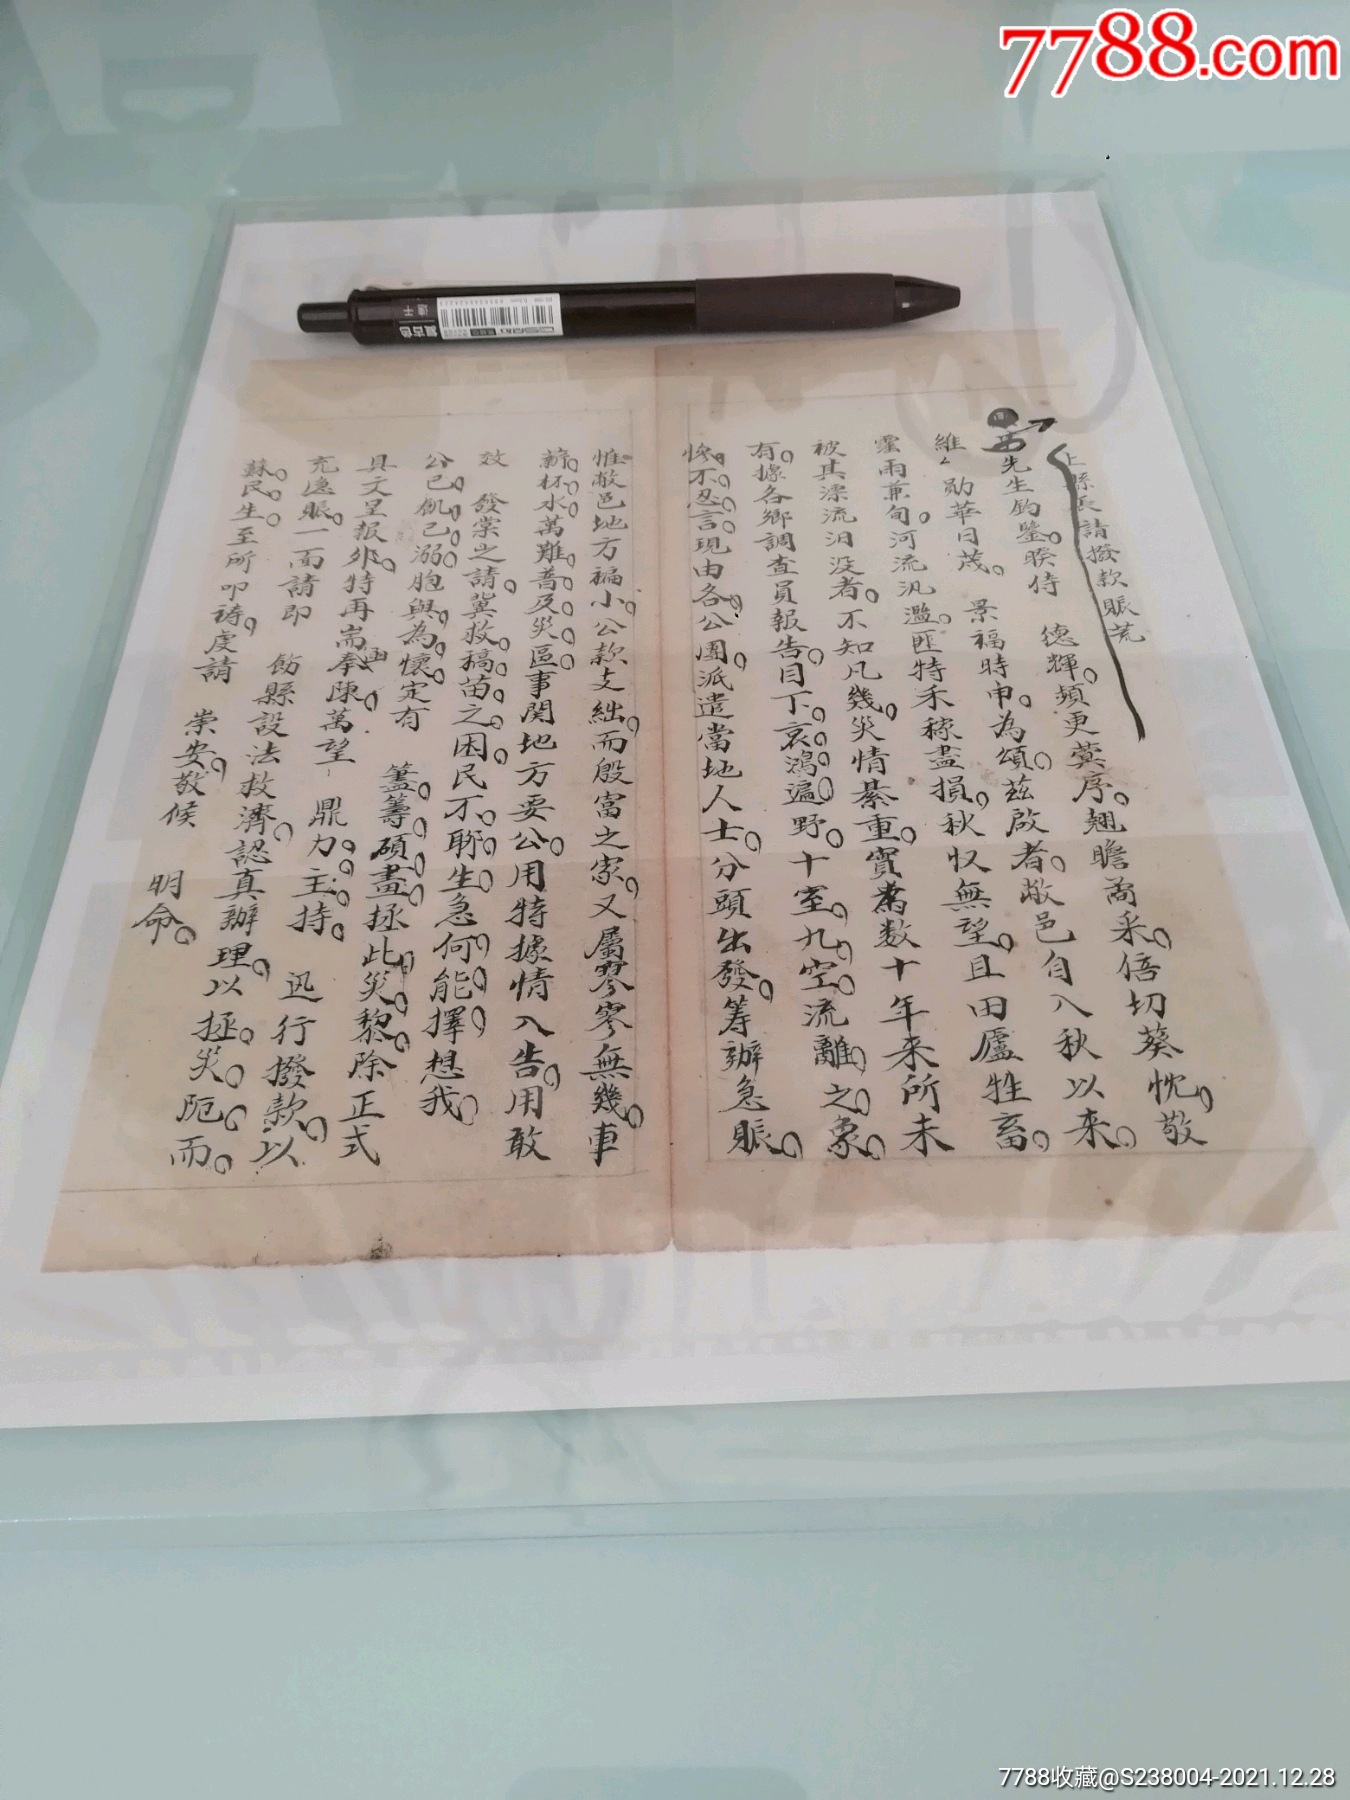 7788.com
上縣長請撥款賑荒
先生鈞鑒睽侍　德輝頻更蓂序翹瞻芮采倍切葵忱敬
維　勛華日茂　景福時申為頌茲啟者敝邑自入秋以来
霪雨兼旬河流汎濫匪特禾稼盡損秋収無望且田廬牲畜
被其漂流汩没者不知凡幾災情綦重實為数十年来所未
有據各鄉調查員報告目下哀鴻遍野十室九空流離之象
慘不忍言現由各公團派遣當地人士分頭出發筹辦急賑
惟敝邑地方褊小公款支絀而殷富之家又屬寥寥無幾車
薪杯水萬難普及災區事関地方要公用特據情入告用敢
效　發棠之請冀救稿苗之困民不聊生急何能擇想我
公己飢己溺胞與為懷定有　藎籌碩畫拯此災黎除正式
具文呈報外特再耑函奉陳萬望　鼎力主持　迅行撥款以
充急賑一面請即　飭縣設法救濟認真辦理以拯災阨而
蘇民生至所叩禱虔請　崇安敬候　明命
7788收藏@S238004-2021.12.28